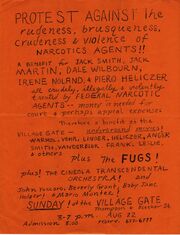 PROTEST AGAINST the
rudeness, brusqueness,
crudeness & violence of
NARCOTICS AGENTS!!
A BENEFIT for JACK SMITH, JACK
MARTIN, DALE WILBOURN,
IRENE NOLAND & PIERO HELICZER
all cruelly, illegally & violently
treated by FEDERAL NARCOTIC
AGENTS -- money is needed for
court & perhaps appeal expenses
There'll be a benefit at the
VILLAGE GATE - underground movies!
WARHOL, VEHR, LINDER, HELICZER, ANGER
SMITH, VANDERBEEK, FRANK, LESLIE,
& others
plus the FUGS!
plus! the CINEOLA TRANSCENDENTAL
ORCHESTRA! and
John Vaccaro, Beverly Grant, Baby Jane
Holzer! & Mario Montez!
SUNDAY! at the VILLAGE GATE
Thompson & Bleecker St.
3-7 p.m. AUG 22
Admission